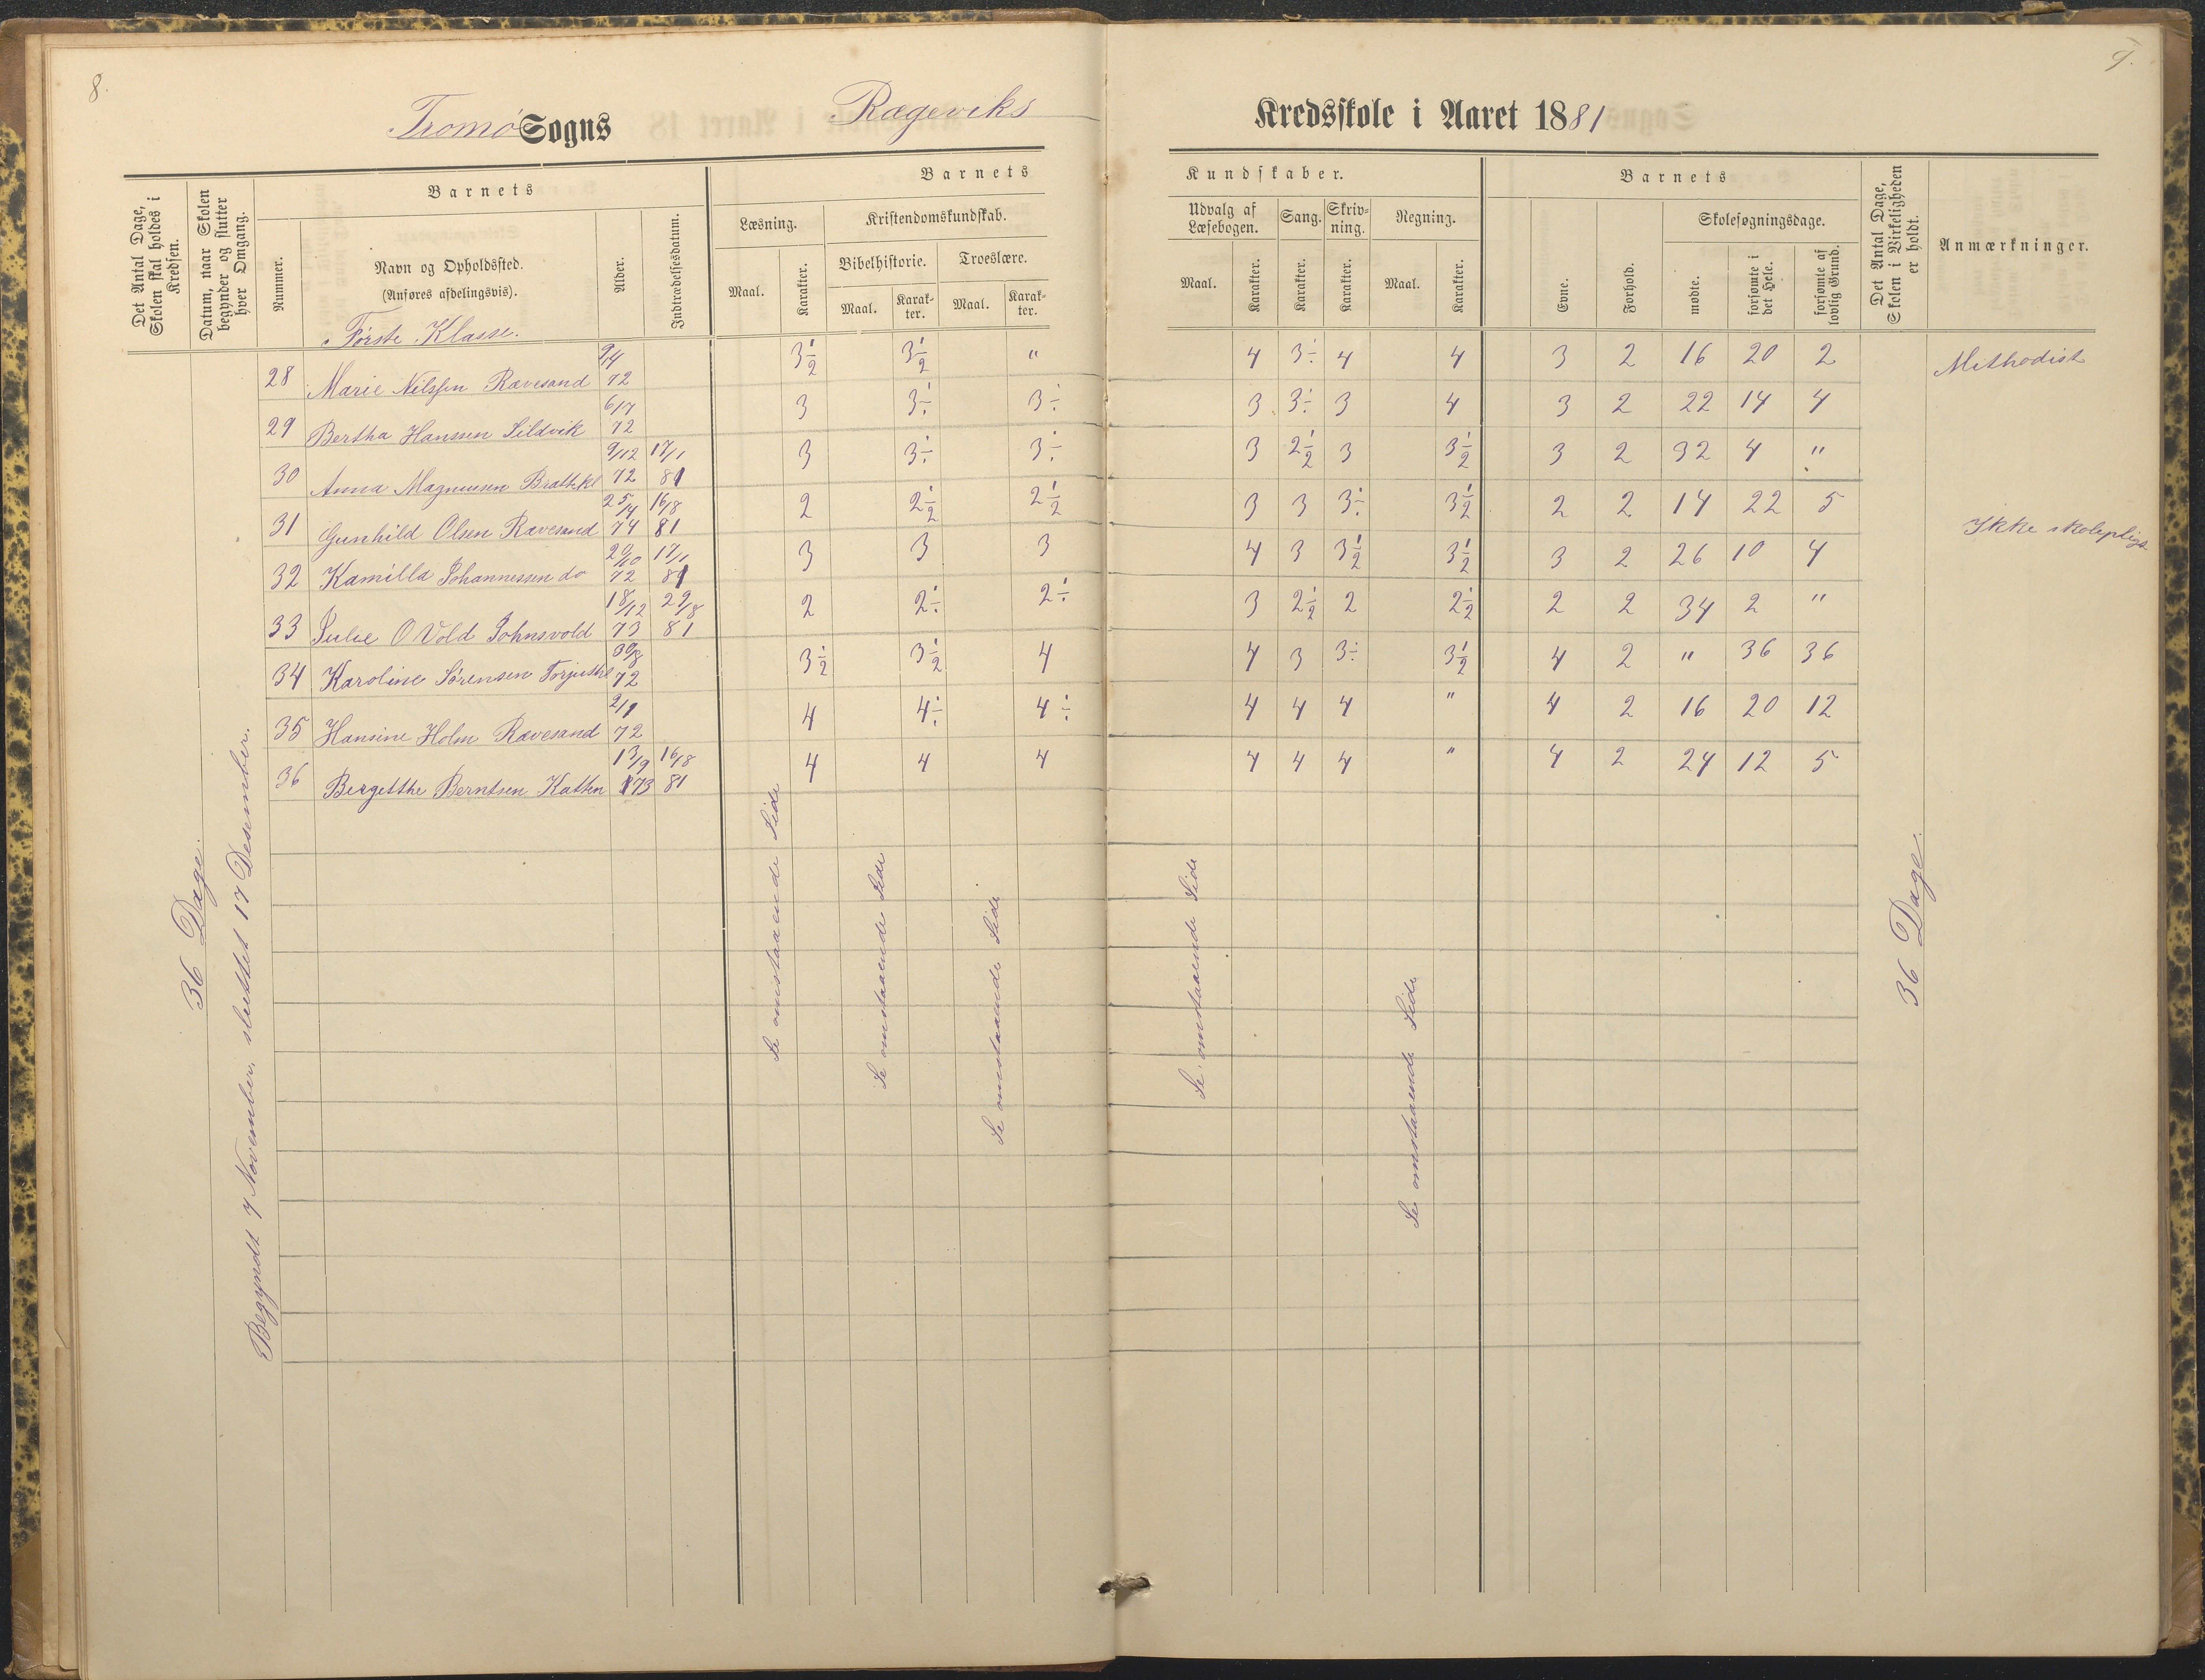 8.
9.
Tromø Sogns Rægeviks Kredsskole i Aaret 1881
Det Antal Dage, Skolen skal holdes i Kredsen.
Datum, naar Skolen begynder og slutter hver Omgang.
Barnets
Nummer.
Navn og Opholdssted.
(Anføres afdelingsvis).
Alder.
Indtrædelsesdatum.
Barnets Kundskaber.
Læsning.
Maal. Karakter.
Kristendomskundskab.
Bibelhistorie. Troeslære.
Maal. Karakter. Maal. Karakter.
Udvalg af Læsebogen.
Maal. Karakter.
Sang.
Karakter.
Skrivning.
Karakter.
Regning.
Maal. Karakter.
Barnets
Evne.
Forhold.
Skolesøgningsdage.
mødte.
forsømte i det Hele.
forsømte af lovlig Grund.
Det Antal Dage, Skolen i Virkeligheden er holdt.
Anmærkninger.
Første Klasse.
28 Marie Nilssen Ravesand 9/4 72 3½ 3½ " 4 3÷ 4 4 3 2 16 20 2 Methodist
29 Bertha Hanssen Sildvik 6/7 72 3 3÷ 3÷ 3 3÷ 3 4 3 2 22 14 4
30 Anna Magnussen Brattekl 9/12 72 17/1 81 3 3÷ 3÷ 3 2½ 3 3½ 3 2 32 4 "
31 Gunhild Olsen Ravesand 25/4 74 16/8 81 2 2½ 2½ 3 3 3÷ 3½ 2 2 14 22 5 Ikke skolepligt
32 Kamilla Johannessen do 20/10 72 17/1 81 3 3 3 4 3 3½ 3½ 3 2 26 10 4
33 Julie O Vold Johnsvold 18/12 73 29/8 81 2 2÷ 2÷ 3 2½ 2 2½ 2 2 34 2 "
34 Karoline Sørensen Torjusthl 30/8 72 3½ 3½ 4 4 3 3÷ 3½ 4 2 " 36 36
35 Hansine Holm Ravesand 2/1 72 4 4÷ 4÷ 4 4 4 " 4 2 16 20 12
36 Bergetthe Berntsen Katten 13/9 73 16/8 81 4 4 4 4 4 4 " 4 2 24 12 5
36 Dage.
Begyndt 7 November, sluttet 17 Desember.
Se omstaaende Side
Se omstaaende Side
Se omstaaende Side
Se omstaaende Side
Se omstaaende Side
36 Dage.